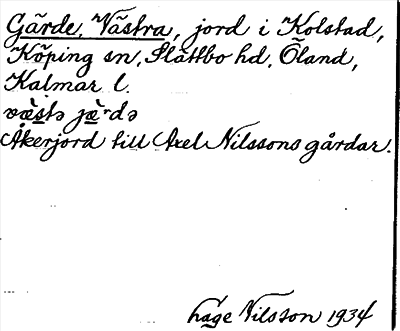 Gärde, Västra, jord i Kolstad,
Köping sn, Slättbo hd, Öland,
Kalmar l.
væ̀stə jæ̀rdə
Åkerjord till Axel Nilssons gårdar.
hage Nilsson 1934